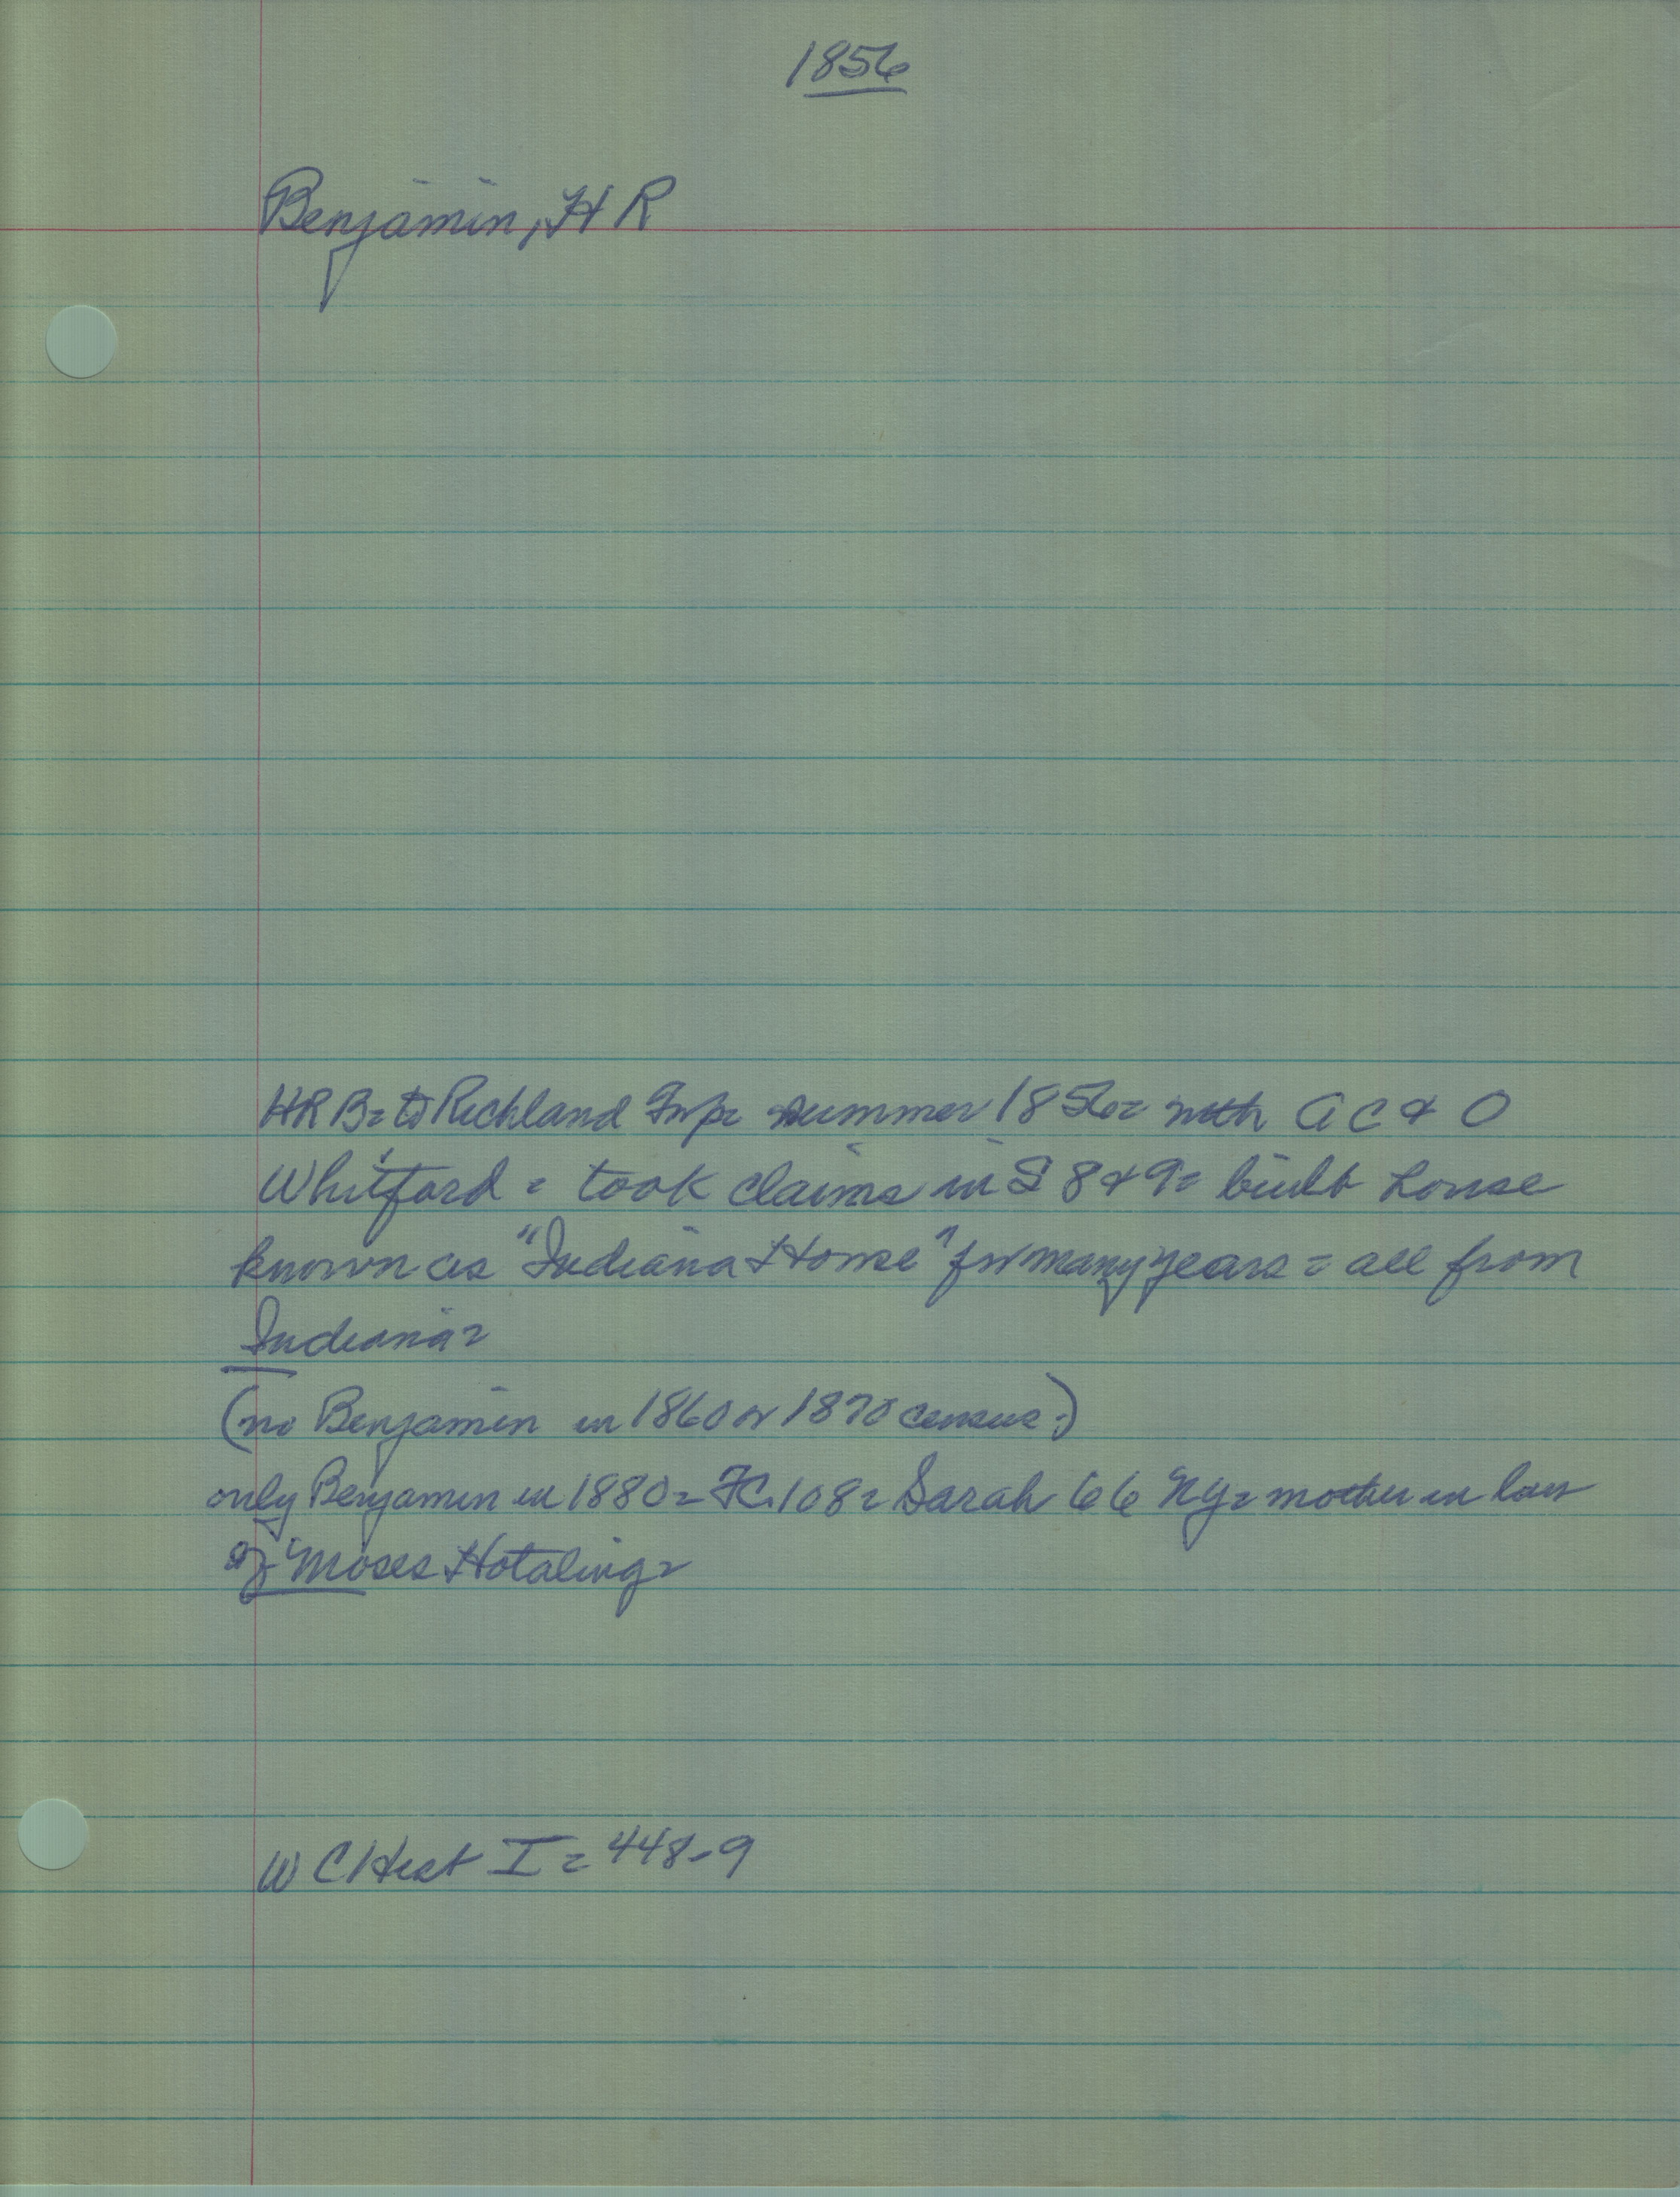 1856
Benjamin, H R
HR B= to Richland Twp= summer 1856= with A C & O
Whitford = took claims in S 8 & 9= built house
known as "Indiana House" for many years = all from
Indiana=
(no Benjamin in 1860 or 1870 census=)
only Benjamin in 1880= FC. 108= Sarah 66 NY= mother in law
of Moses Hotaling=
W C Hist I = 448-9